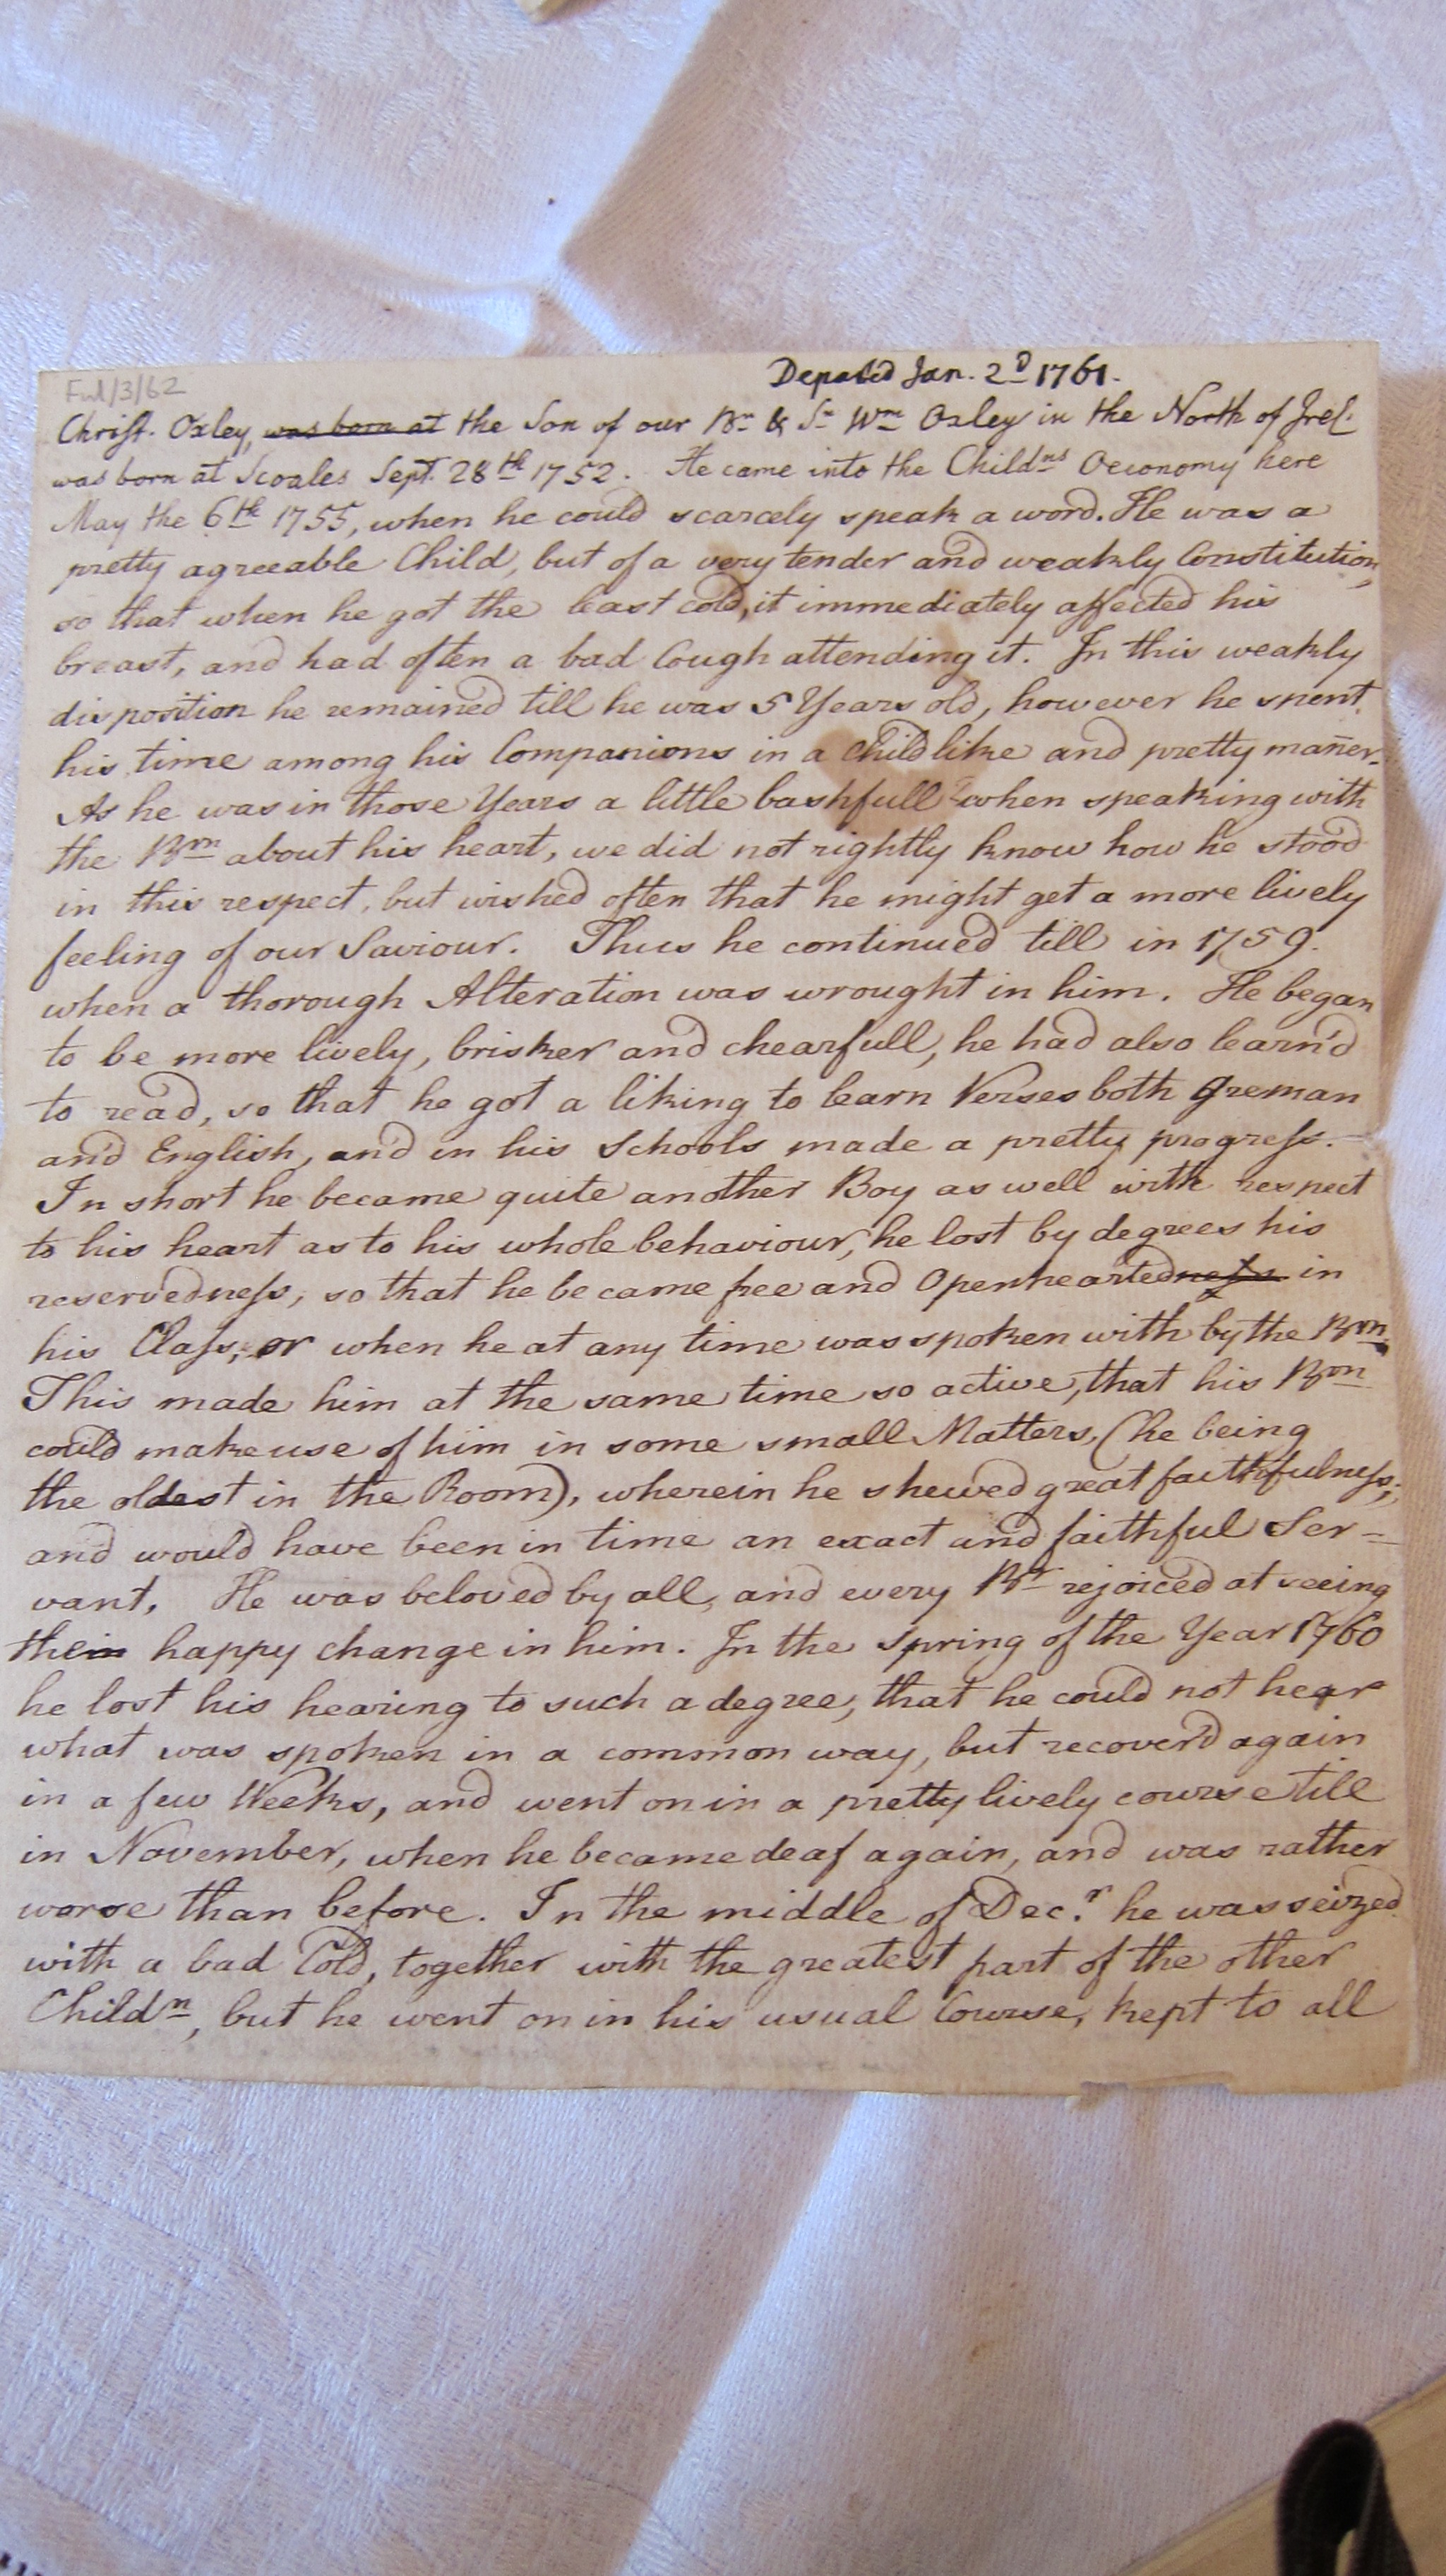 Ful/3/62
Departed Jan. 2d 1761.
Christ. Oxley, was born at the Son of our Br & Sr Wm Oxley in the North of Irel.
was born at Scoales Sept. 28th 1752. He came into the Childns Oeconomy here
May the 6th 1755, when he could scarcely speak a word. He was a
pretty agreeable Child, but of a very tender and weakly Constitution,
so that when he got the least cold, it immediately affected his
breast, and had often a bad Cough attending it. In this weakly
disposition he remained till he was 5 Years old, however he spent
his time among his Companions in a childlike and pretty mañer.
As he was in those Years a little bashfull when speaking with
the Brn about his heart, we did not rightly know how he stood
in this respect, but wished often that he might get a more lively
feeling of our Saviour. Thus he continued till in 1759.
when a thorough Alteration was wrought in him. He began
to be more lively, brisker and chearfull, he had also learn'd
to read, so that he got a liking to learn Verses both greman
and English, and in his Schools made a pretty progress.
In short he became quite another Boy as well with respect
to his heart as to his whole behaviour, he lost by degrees his
reservedness, so that he became free and Openheartedness in
his Class, or when he at any time was spoken with by the Brn.
This made him at the same time so active, that his Brn
could make use of him in some small Matters, (he being
the oldest in the Room), wherein he shewed great faithfulness;
and would have been in time an exact and faithful Ser=
vant. He was beloved by all, and every Br rejoiced at seeing
the happy change in him. In the Spring of the Year 1760
he lost his hearing to such a degree, that he could not hear
what was spoken in a common way, but recover'd again
in a few Weeks, and went on in a pretty lively course till
in November, when he became deaf again, and was rather
worse than before. In the middle of Decr. he was seized
with a bad Cold, together with the greatest part of the other
Childn, but he went on in his usual Course, kept to all